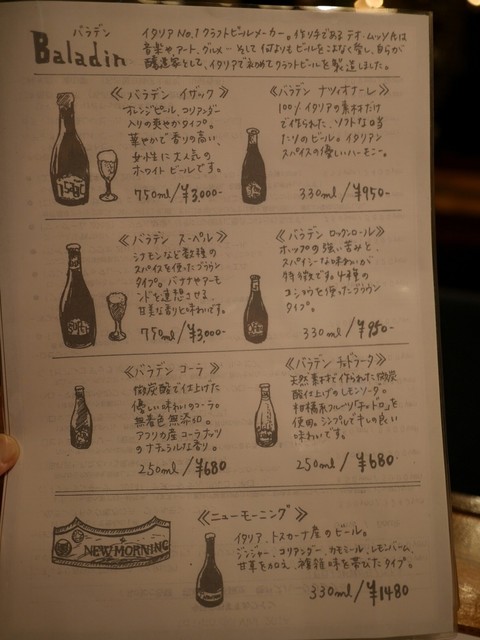 バラデン
Baladin
イタリア No.1 クラフトビールメーカー。作り手である テオ・ムッソ氏は
音楽や、アート、グルメ…そして何よりもビールをこよなく愛し、自らが
醸造家として、イタリアで初めてクラフトビールを製造しました。
《バラデン イザック》
オレンジピール、コリアンダー
入りの爽やかタイプ。
華やかで香りの高い、
女性に大人気の
ホワイトビールです。
750ml/¥3,000-
《バラデン ナツィオナーレ》
100%イタリアの素材だけ
で作られた、ソフトな口当
たりのビール。イタリアン
スパイスの優しいハーモニー。
330ml/¥950-
《バラデン スーペル》
シナモンなど数種の
スパイスを使ったブラウン
タイプ。バナナやアーモ
ンドを連想させる、
甘美な香りと味わいです。
750ml/¥3,000-
《バラデン ロックンロール》
ホップの強い苦みと、
スパイシーな味わいが
特徴です。
コショウを使ったブラウン
タイプ。
330ml/¥950-
《バラデン コーラ》
微炭酸で仕上げた
優しい味わいのコーラ。
無着色無添加。
アフリカ産コーラナッツ
のナチュラルな香り。
250ml/¥680
《バラデン チェドラータ》
天然素材で作られた微炭
酸仕上げのレモンソーダ。
柑橘系フルーツ「チェドロ」を
使用。シンプルでキレの良い
味わいです。
250ml/¥680-
NEW MORNING
《ニューモーニング》
イタリア、トスカーナ産のビール。
ジンジャー、コリアンダー、カモミール、レモンバーム、
甘草を加え、複雑味を帯びたタイプ。
330ml/¥1480